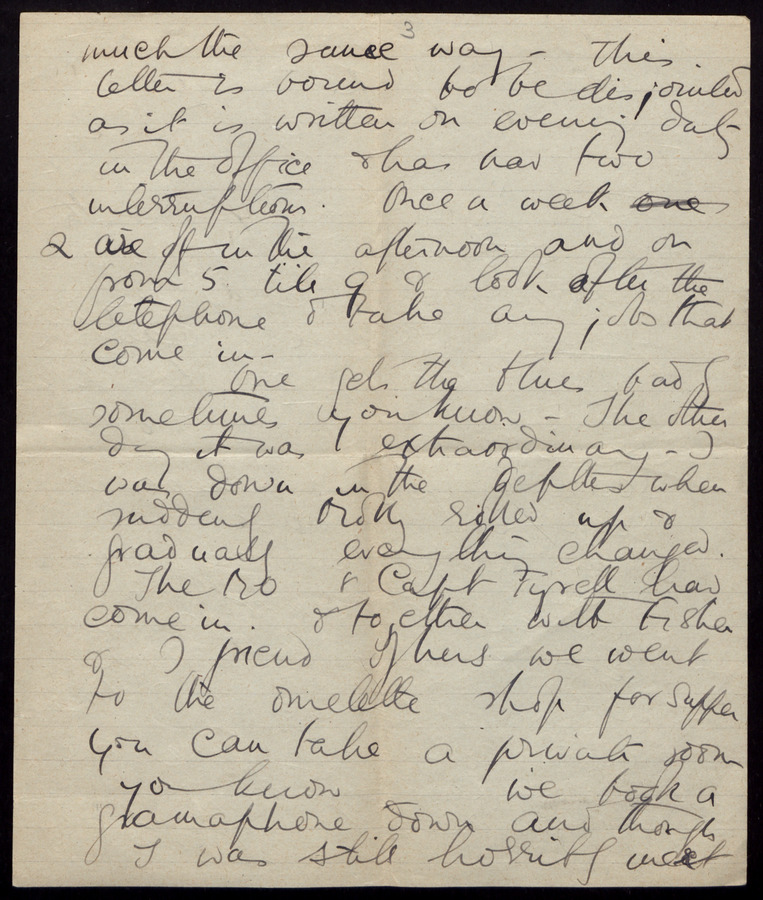 3
much the same way - This
letter is bound to be disjointed
as it is written on evening duty
in the office & has had two
interruptions. Once a week one
2 are off in the afternoon and on
from 5 till 9 & look after the
telephone & take any jobs that
come in -
One gets the blues badly
sometimes you know - The other
day it was extraordinary - I
was down in the depths when
suddenly rolled up &
gradually everything changed.
The BO & Capt Tyrell had
come in. & together with Fisher
& I friend of hers we went
to the omelette shop for supper
you can take a private room
you know we took a
gramaphone down and though
I was still horribly